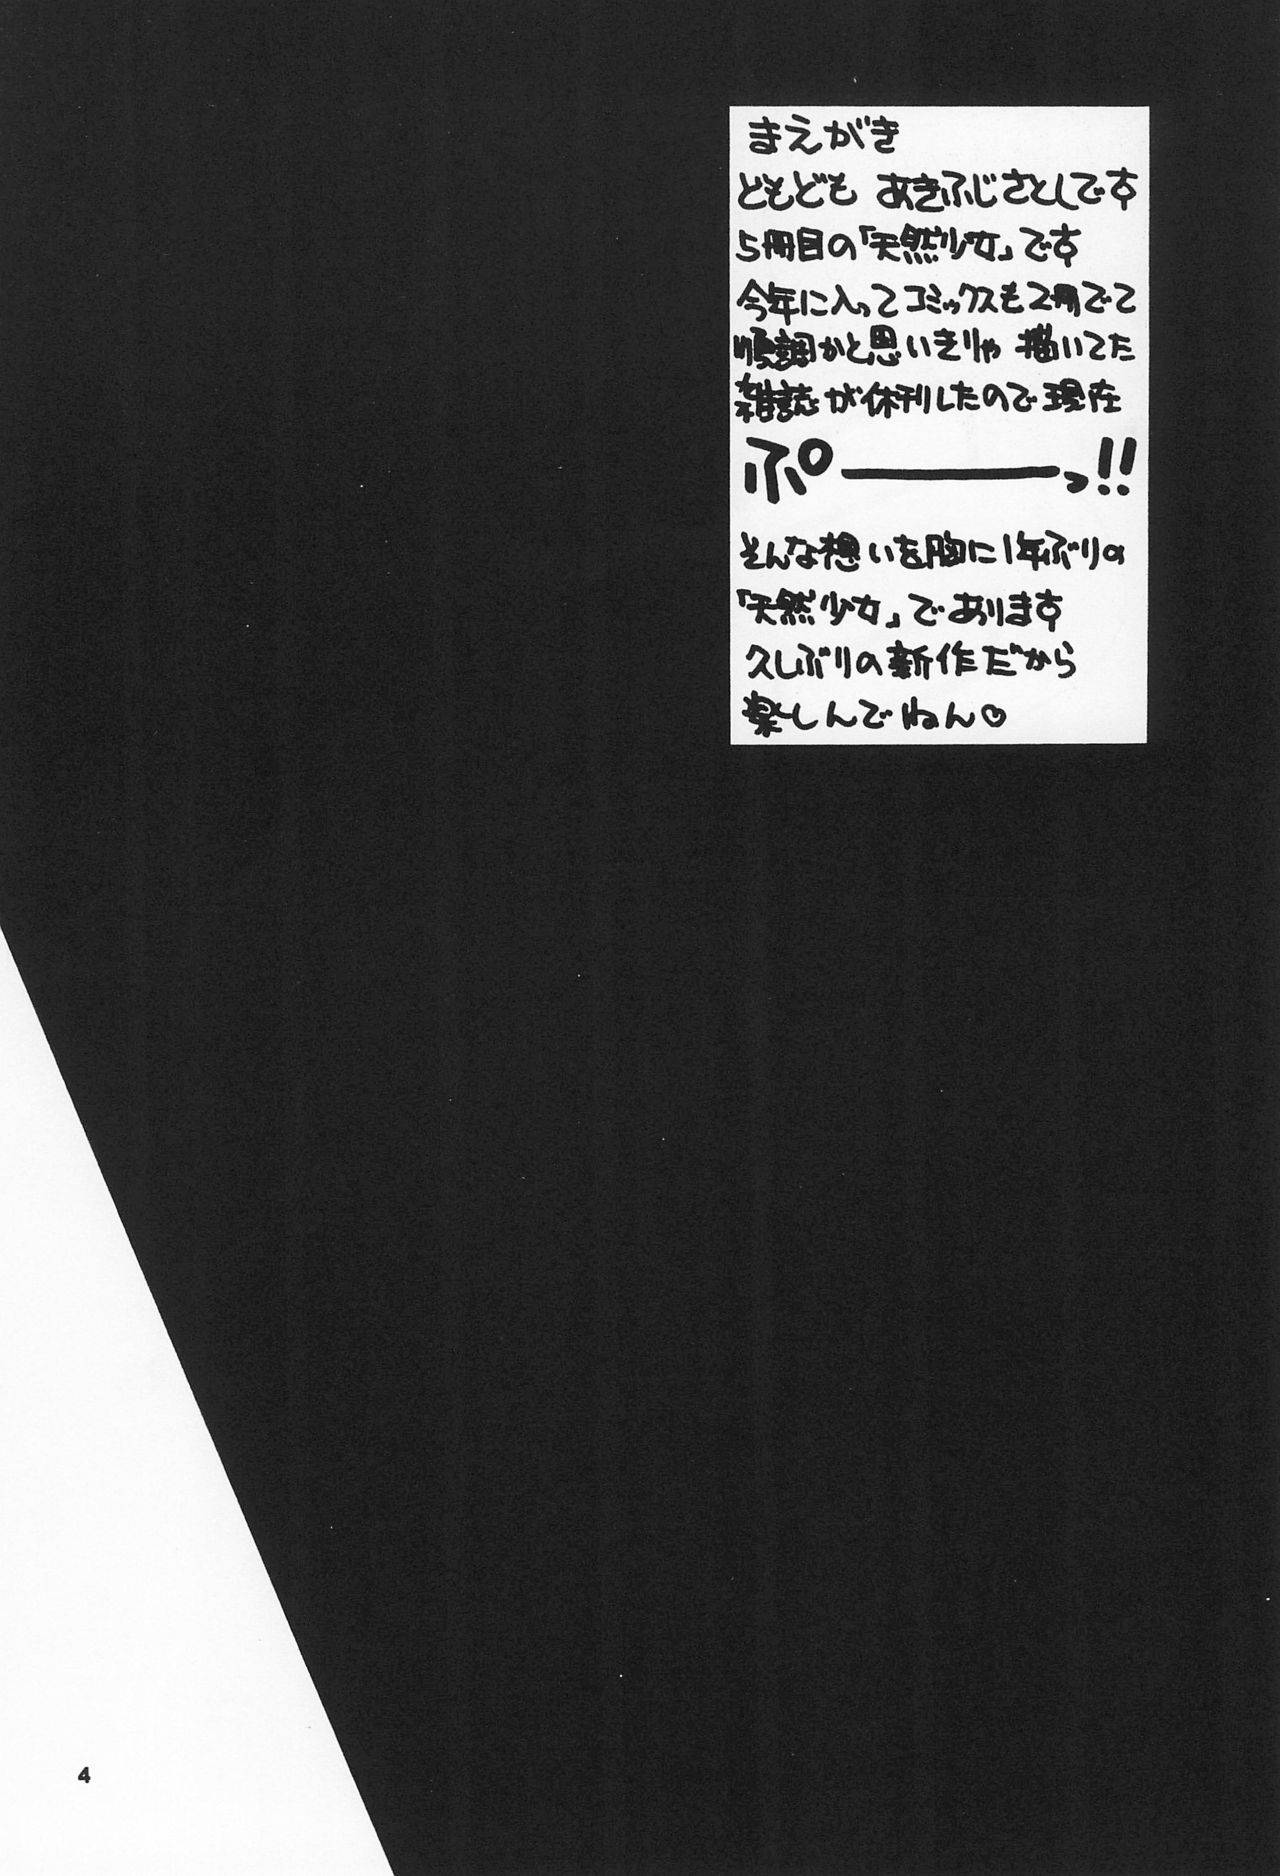 まえがき
どもども あきふじさとしです
5冊目の「天然少女」です
今年に入ってコミックスも2冊でて
順調かと思いきりゃ 描いてた
雑誌が休刊したので現在
ぷーーーっ!!
そんな想いを胸に1年ぶりの
「天然少女」であります
久しぶりの新作だから
楽しんでねん♡
4